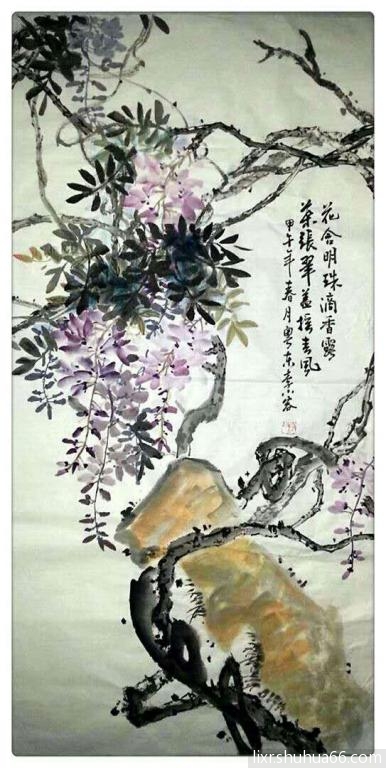 花含明珠滴香露
葉張翠盖摇春風
甲午年春月粤东李容
lixrshuhua66.com